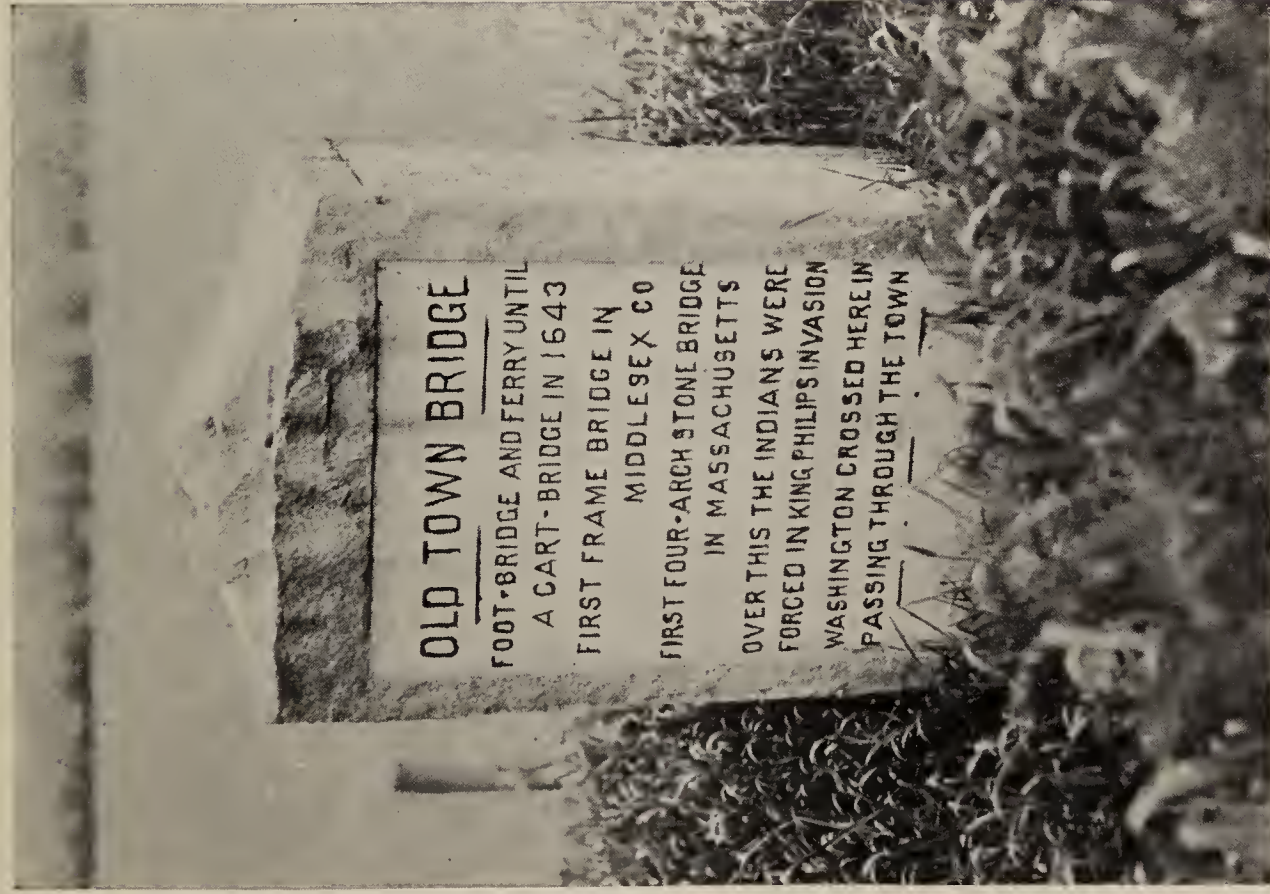 OLD TOWN BRIDGE
FOOT-BRIDGE AND FERRY UNTIL
A CART-BRIDGE IN 1643
FIRST FRAME BRIDGE IN
MIDDLESEX CO
FIRST FOUR-ARCH STONE BRIDGE
IN MASSACHUSETTS
OVER THIS THE INDIANS WERE
FORCED IN KING PHILIPS INVASION
WASHINGTON CROSSED HERE IN
PASSING THROUGH THE TOWN